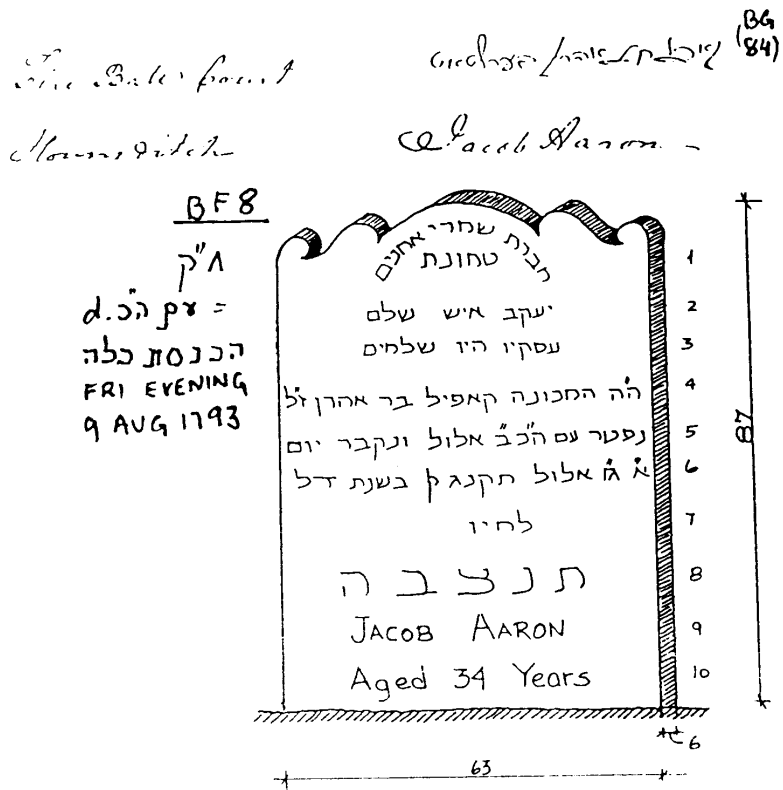 (BG
84)
Jacob Aaron
BF8
ח"ק
d. ה"כ עם =
הכנסת כלה
FRI EVENING
9 AUG 1793
חברת שחרי אחנים
טחונת
יעקב איש שלם
עסקיו היו שלחים
ה"ה החכונה קאפיל בר אהרן ז"ל
נפטר עם ה"כב" אלול ונקבר יום
אלול תקנג בשנת דל
לחיו
תנצבה
JACOB AARON
Aged 34 Years
1
2
3
4
5
6
7
8
9
10
87
6
63